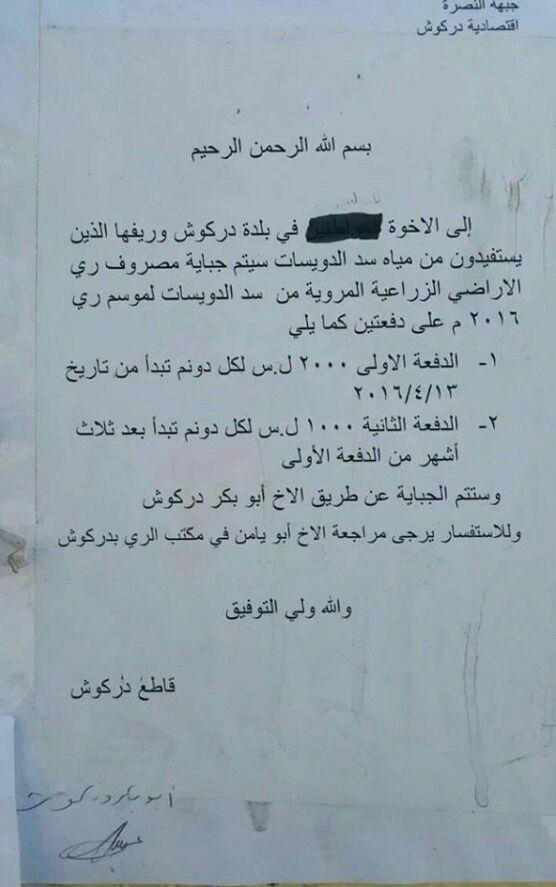 جبهة النصرة
اقتصادية دركوش
بسم الله الرحمن الرحيم
إلى الاخوة في بلدة دركوش وريفها الذين
يستفيدون من مياه سد الدويسات سيتم جباية مصروف ري
الاراضي الزراعية المروية من سد الدويسات لموسم ري
٢٠١٦ م على دفعتين كما يلي
١- الدفعة الاولى ٢٠٠٠ ل.س لكل دونم تبدأ من تاريخ
٢٠١٦/٤/١٣
٢- الدفعة الثانية ١٠٠٠ ل.س لكل دونم تبدأ بعد ثلاث
أشهر من الدفعة الأولى
وستتم الجباية عن طريق الاخ أبو بكر دركوش
وللاستفسار يرجى مراجعة الاخ أبو يامن في مكتب الري بدركوش
والله ولي التوفيق
قاطع دركوش